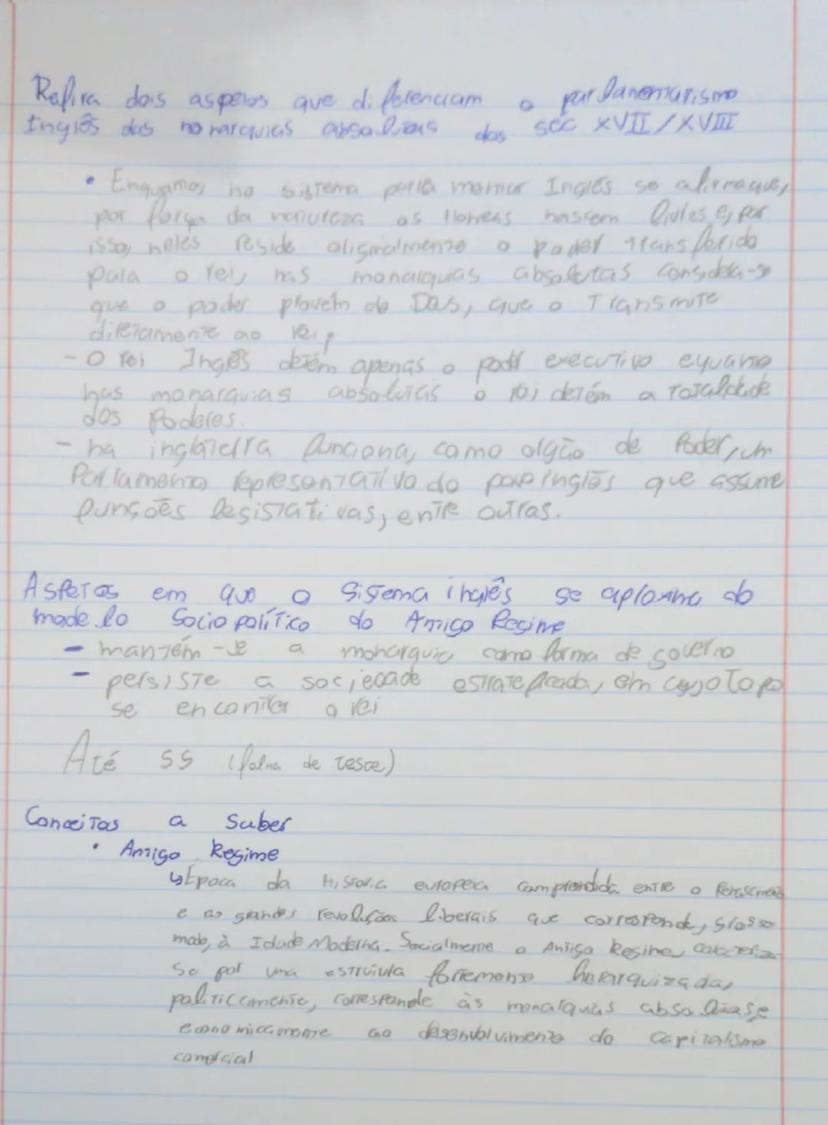 Refira dois aspetos que diferenciam o parlamentarismo
Inglês das monarquias absolutas dos séc XVII/XVIII
• Enquanto, no sistema parlamentar Inglês se afirma que,
por força da natureza os Homens nascem livres e, por
isso, neles reside originalmente o poder transferido
para o rei, nas monarquias absolutas considera-se
que o poder provém de Deus, que o Transmite
diretamente ao rei;
- O rei Inglês detém apenas o poder executivo equanto
nas monarquias absolutas o rei detém a totalidade
dos Poderes.
- na inglaterra funciona, como orgão de Poder, um
Parlamento representativo do povo inglês que assume
funções legislativas, entre outras.
Aspetos em que o sistema inglês se aproxima do
modelo Sociopolítico do Antigo Regime
- mantém-se a monarquia como forma de governo
- persiste a sociedade estratificada, em cujo topo
se encontra o rei
Até 55 (folha de teste)
Conceitos a Saber
• Antigo Regime
↳ Época da História europeia compreendida entre o Renascimento
e as grandes revoluções liberais que corresponde, grosso
modo, à Idade Moderna. Socialmente o Antigo Regime, caracteriza-
se por uma estrutura fortemente hierarquizada,
politicamente, corresponde às monarquias absolutas e,
economicamente ao desenvolvimento do capitalismo
comercial